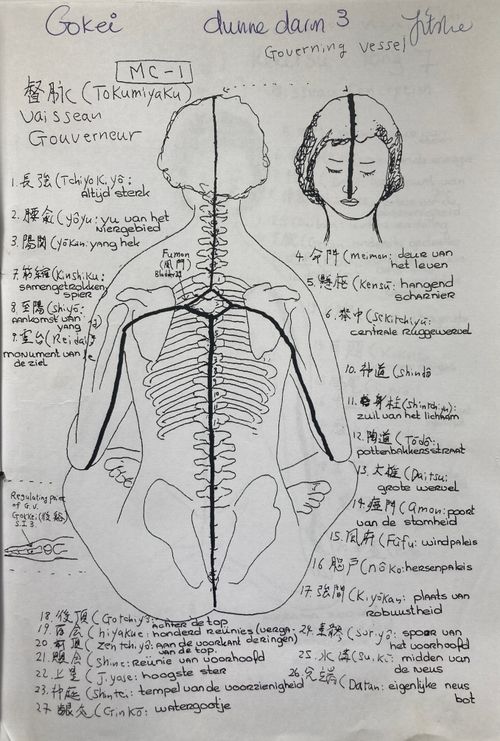 Gokei dunne darm 3
Governing vessel
MC-1
督脈 (Tokumiyaku)
Vaisseau
Gouverneur
1. 長強 (Tchiyok, yô;
altijd sterk
2. 腰兪 (yôyu: yu van het
niergebied
3. 陽関 (yôkan: yang hek
7. 筋縮 (Kinshiku:
samengetrokken
spier
8. 至陽 (shiyô:
aankomst van
yang
9. 霊台 (Reidai
monument van
de ziel
Fumon
(風門)
Bladder
4. 命門 (meimon: deur van
het leven
5. 懸枢 (Kensû: hangend
scharnier
6. 脊中 (Sekitchiyû:
centrale ruggewervel
10. 神道 (shindô
11. 身柱 (shintchiyu):
zuil van het lichaam
12. 陶道 (Tôdô:
pottenbakkersstraat
13. 大椎 (Daitsu:
grote wervel
14. 瘂門 (amon: poort
van de stomheid
15. 風府 (Fûfu: windpaleis
16 脳戸 (nôko: hersenpaleis
17. 強間 (Kiyôkan: plaats van
robuustheid
Regulating point
of G.V.
Gokkei (後谿)
S.I 3
18. 後頂 (Gotchiyô: achter de top
19. 百会 (hiyakue: honderd reünies (verga-
deringen)
20. 前頂 (Zentchiyô: aan de voorkant
van de top.
21. 顖会 (Shine: reunie van voorhoofd
22. 上星 (Jiyose: hoogste ster
23. 神庭 (Shintei: tempel van de voorzienigheid
27. 齦交 (Ginkô: watergootje
24. 素髎 (Soriyô: spoor van
het voorhoofd
25. 水溝 (Suikô: midden van
de neus
26. 兌端 (Datan: eigenlijke neus
bot